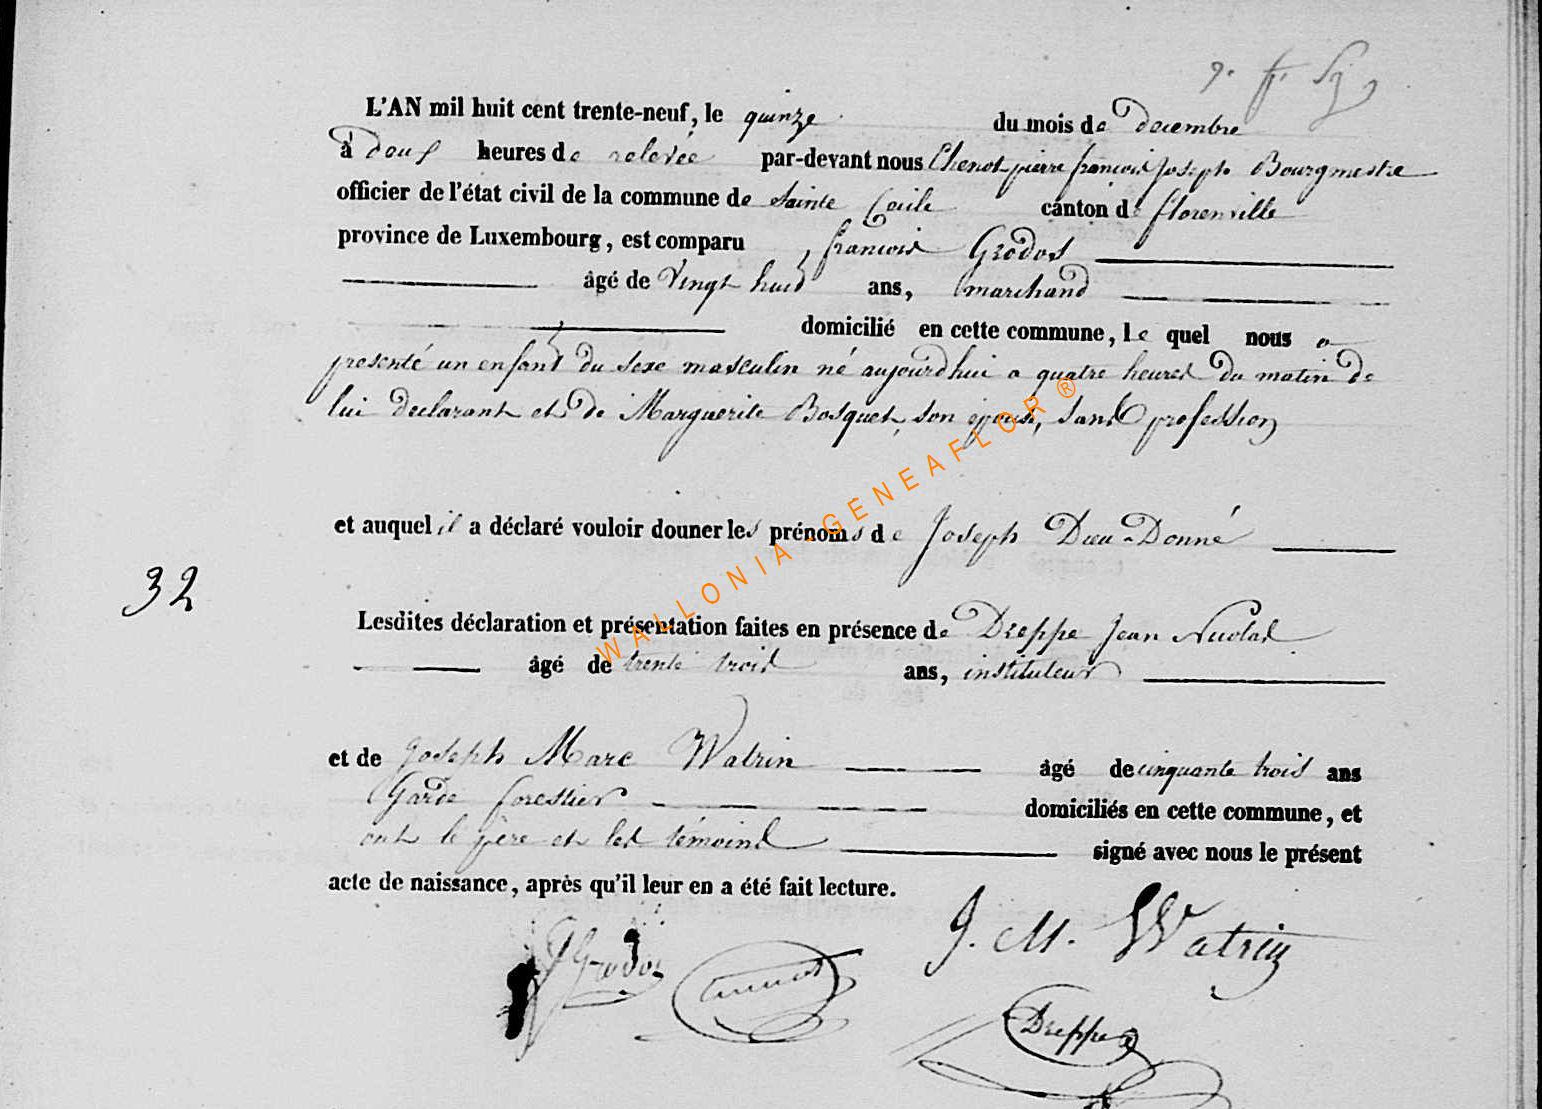 L'AN mil huit cent trente-neuf, le quinze du mois de decembre
à deux heures de relevée par-devant nous Chenot pierre françois Joseph Bourgmestre
officier de l'état civil de la commune de Sainte Cecile canton de florenville
province de Luxembourg, est comparu françois Grodos
âgé de vingt huit ans, marchand
domicilié en cette commune, le quel nous a
presenté un enfant du sexe masculin né aujourd'hui a quatre heures du matin de
lui declarant et de Marguerite Bosquet, son épouse, sans profession
et auquel il a déclaré vouloir donner les prénoms de Joseph Dieu-Donné
32
Lesdites déclaration et présentation faites en présence de Dreppe Jean Nicolas
âgé de trente trois ans, instituteur
et de Joseph Marc Watrin âgé de cinquante trois ans
Garde forestier domiciliés en cette commune, et
ont le père et les témoins signé avec nous le présent
acte de naissance, après qu'il leur en a été fait lecture.
J. M. Watrin
f Grodos
Dreppe
WALLONIA-GENEAFLOR®